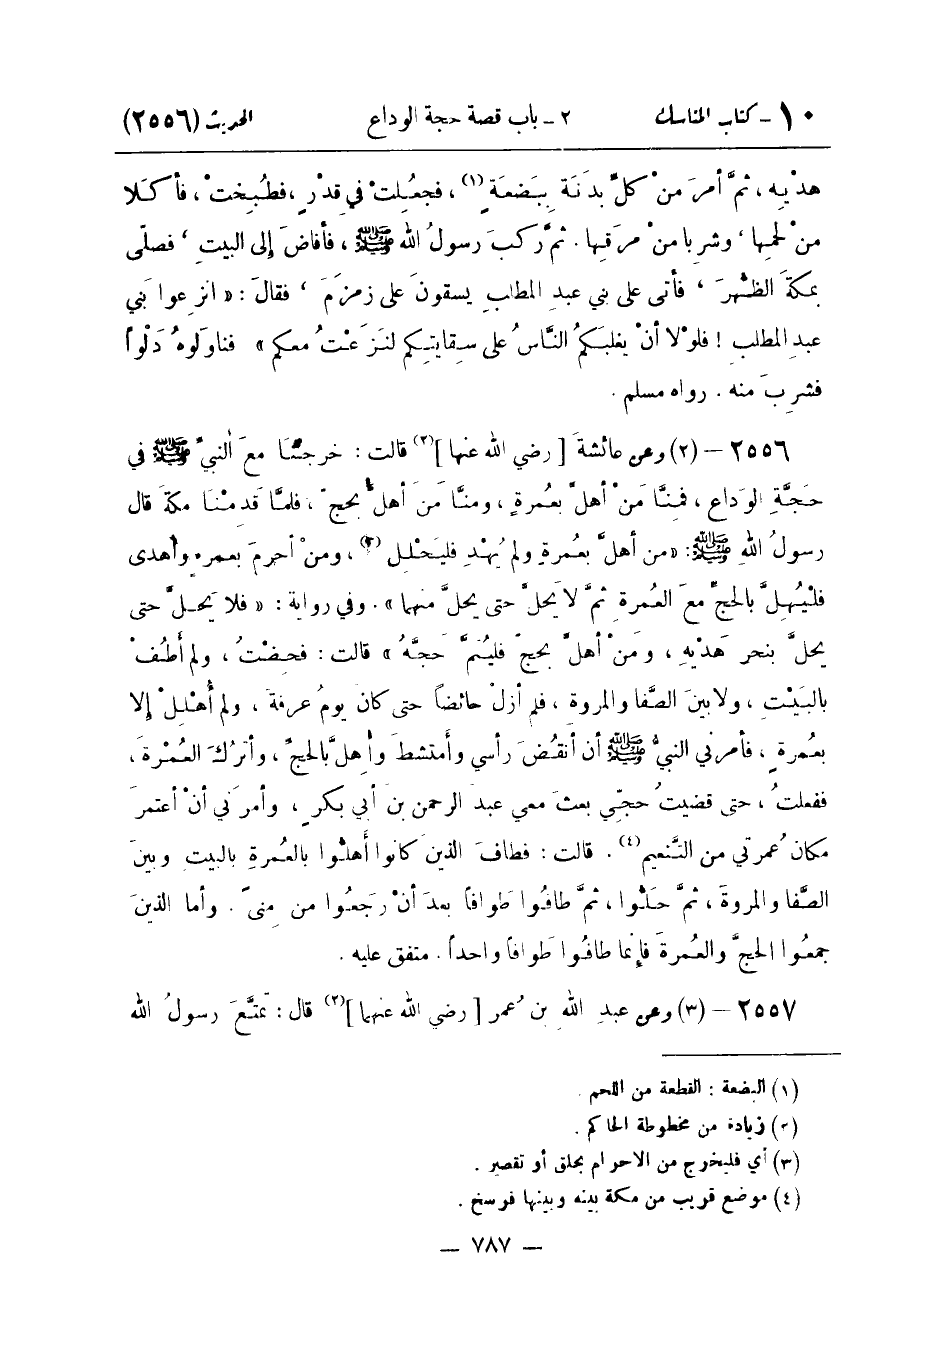 ١٠ - كتاب المناسك ٢ - باب قصة حجة الوداع الحديث (٢٥٥٦)
هدْيِه ، ثمَّ أمرَ منْ كلِّ بدَنَة بِبَضعَةٍ(١) ، فجعُلِتْ في قِدْرٍ ، فطُبِختْ ، فأكَلا
منْ لحمِها ، وشرِبا منْ مرَقِها . ثمَّ ركبَ رسولُ الله ﷺ ، فأفاضَ إلى البيتِ ، فصلّى
بمكةَ الظُّهرَ ، فأتى على بني عبد المطلب يسقونَ على زمزَمَ ، فقالَ : « انزِعوا بَني
عبدِ المطلبِ ! فلوْلا أنْ يغلبَكمُ النَّاسُ على سِقايتِكم لنَزَعْتُ معكم » فناوَلوهُ دَلْواً
فشربَ منه . رواه مسلم .
٢٥٥٦ - (٢) وعن عائشةَ [ رضي الله عنها ](٢) قالت : خرجْنَا معَ النبيِّ ﷺ في
حَجَّةِ الوَداع ، فمِنَّا مَنْ أهلَّ بعُمرةٍ ، ومنَّا مَنَ أهلَّ بحجّ ، فلمَّا قَدِمْنا مكةَ قال
رسولُ اللهِ ﷺ : «من أهلَّ بعُمرةٍ ولم يُهْدِ فليَحْلل (٣) ، ومنْ أحرمَ بعمرةٍ وأهدى
فلْيُهلَّ بالحجِّ معَ العُمرة ثمَّ لا يَحلّ حتى يحلَّ منهما » . وفي رواية : « فلا يَحِلَّ حتى
يحلَّ بنحر هَدْيِه ، ومَنْ أهلَّ بحجّ فليُتمَّ حجَّهُ » قالت : فحِضْتُ ، ولم أَطُفْ
بالبَيْتِ ، ولا بينَ الصَّفا والمروة ، فلم أزلْ حائضاً حتى كان يومُ عرفةَ ، ولم أُهْلِلْ إلا
بعُمرةٍ ، فأمرَني النبيُّ ﷺ أن أنقُضَ رأسي وأمتشطَ وأُهلَّ بالحجِّ ، وأتركَ العُمْرةَ ،
ففعلتُ ، حتى قضيتُ حجّي بعثَ معي عبدَ الرحمنِ بنَ أبي بكرٍ ، وأمرَني أنْ أعتمرَ
مكانَ عُمرتي من التَّنعيم(٤) . قالت : فطافَ الذينَ كانوا أهلُّوا بالعُمرةِ بالبيتِ وبينَ
الصَّفا والمروةَ ، ثمَّ حَلُّوا ، ثمَّ طافُوا طَوافاً بعدَ أنْ رجَعُوا من مِنىً . وأما الذينَ
جمعُوا الحجَّ والعُمرةَ فإنما طافُوا طَوافاً واحداً . متفق عليه .
٢٥٥٧ - (٣) وعن عبدِ اللهِ بن عُمر [ رضي الله عنهما ](٢) قال : تمتَّعَ رسولُ الله
(١) البضعة : القطعة من اللحم .
(٢) زيادة من مخطوطة الحاكم .
(٣) أي فليخرج من الاحرام بحلق أو تقصير .
(٤) موضع قريب من مكة بينه وبينها فرسخ .
— ٧٨٧ —